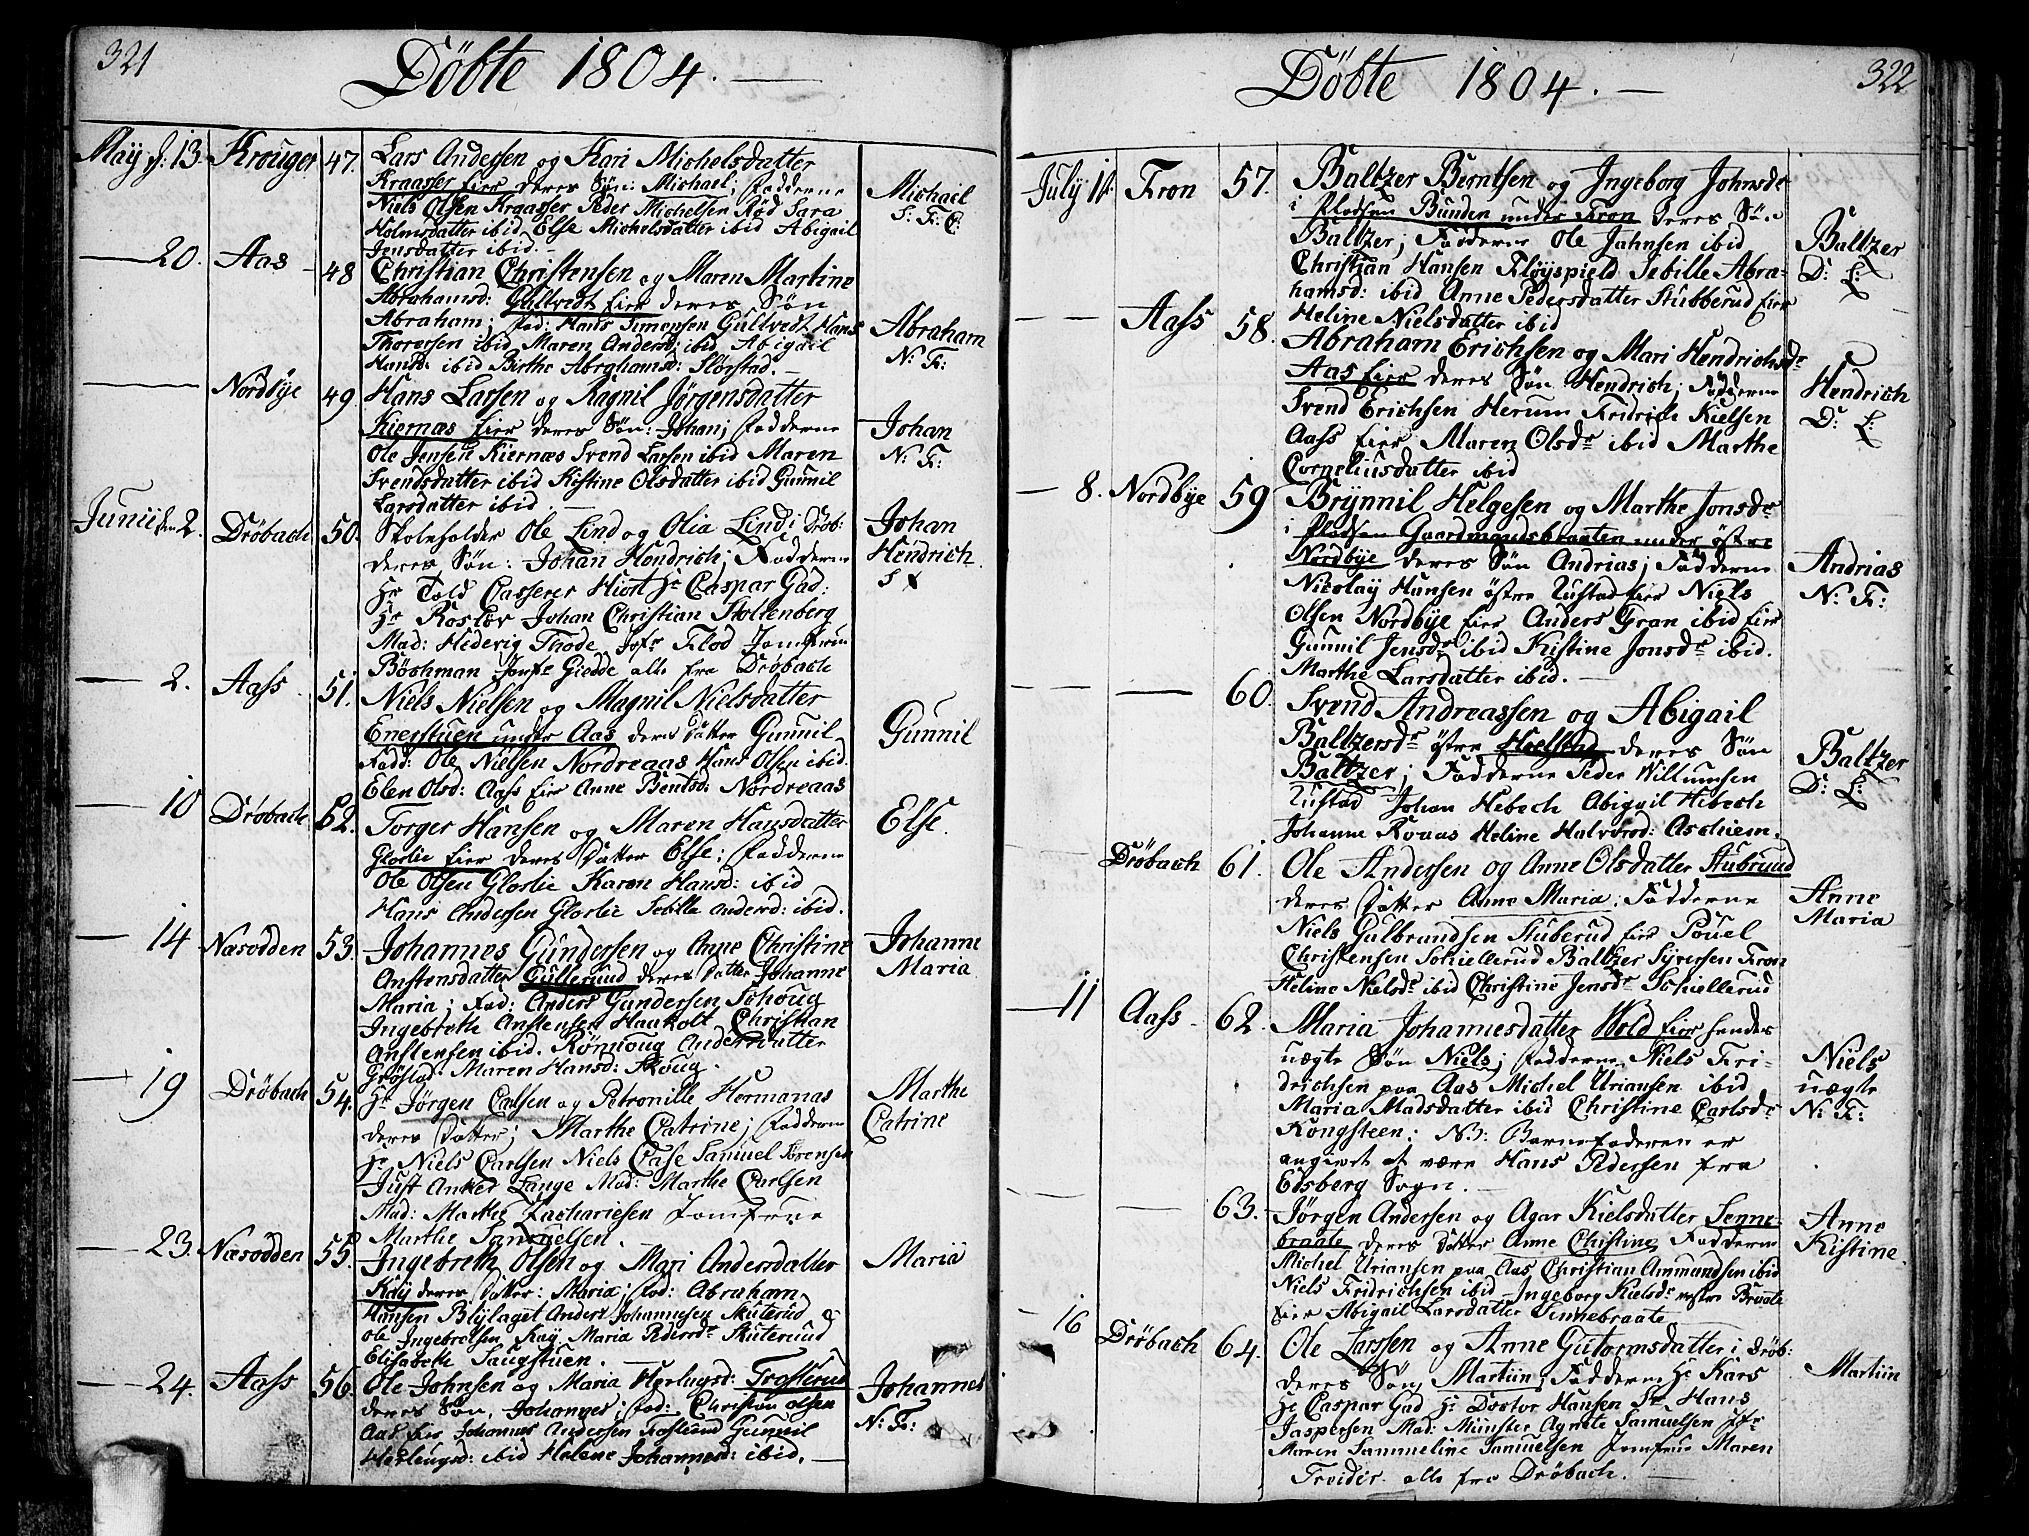 321
Döbte 1804.
May d: 13. Krouger 47. Lars Andersen og Kari Michelsdatter
Kraasser Eier deres Søn: Michael; Fadderne
Niels Olsen Kraasser Peder Michelsen Rød Sara
Holmsdatter ibid, Else Michelsdatter ibid Abigail
Jensdatter ibid.
Michael
S: F: E:
20. Aas 48 Christian Christensen og Maren Martine
Abrahamsd: Gultvedt Eier deres Søn
Abraham; Fad: Hans Simensen Gultvedt Hans
Thoresen ibid, Maren Andersd: ibid Abigail
Hansd: ibid Birthe Abrahamsd: Slorstad.
Abraham
N: F:
Nordbye 49. Hans Larsen og Ragnil Jörgensdatter
Kiernæs Eier deres Søn: Johan; Fadderne
Ole Jensen Kiernæs Svend Larsen ibid Maren
Svendsdatter ibid Kistine Olsdatter ibid Gunnil
Larsdatter ibid.
Johan
N: F:
Junii den 2. Dröbach 50. Skoleholder Ole Lind og Olia Lind i Dröb:
deres Søn: Johan Hendrich; Fadderne
Hr Told Casserer Hiort Hr Caspar Gad:
Hr Johan Christian Stoltenberg
Mad: Hedevig Thode, Jofr Flod Jomfrue
Böchman Jomfr Giedde alle fra Dröbach
Johan
Hendrich.
2. Aass 51. Niels Nielsen og Magnil Nielsdatter
Enerstuen under Aas deres Datter Gunnil
Fadd: Ole Nielsen Nordreaas Hans Olsen ibid.
Elen Olsd: Aass Eier Anne Bentsd: Nordreaas
Gunnil
10 Dröbach 52. Torger Hansen og Maren Hansdatter
Glorlie Eier deres Datter Else; Fadderne
Ole Olsen Glorlie Karen Hansd: ibid
Hans Andersen Glorlie Sebille Andersd: ibid.
Else.
14 Næsodden 53. Johannes Gundersen og Anne Christine
Anstensdatter Gullerud deres Datter Johanne
Maria; Fad: Anders Gundersen Schoug
Ingebreth Anstensen Haakolt Christian
Anstensen ibid. Römoug Andersdatter
Fröstad. Maren Hansd: Skoug.
Johanne
Maria
19 Dröbach 54. Hr Jörgen Carlsen og Petronille Hermanas
deres Datter; Marthe Catrine; Fadderne
Hr Niels Carlsen Niels Case Samuel Sörensen
Just Anker Lange Mad: Marthe Carlsen
Mad: Marthe Zachariesen Jomfrue
Marthe Samuelsen.
Marthe
Catrine
23. Næsodden 55. Ingebreth Olsen og Mari Andersdatter
Kay deres Datter: Maria; Fad: Abraham
Hansen Blylaget Anders Johannesen Skuterud
Ole Ingebretsen Kay. Maria Pedersdr Skuterud
Elisabeth Saugstuen.
Maria
24. Aass 56. Ole Johnsen og Maria Herlugsd: Trosterud
deres Søn, Johannes; Fad: Christian Olsen
Aas Eier Johannes Andersen Trosterud Gunnil
Herlougsd: ibid Helene Johannesd: ibid.
Johannes
N: F:
322
Döbte 1804.
July 1 Fron 57. Baltzer Berntsen og Ingeborg Johnsdr
i Pladsen Bunden under Fron deres Søn
Baltzer; Fadderne Ole Jahnsen ibid
Christian Hansen Flöyspield Sebille Abra-
hamsd: ibid Anne Pedersdatter Stubberud Eier
Heline Nielsdatter ibid
Baltzer
D: L:
Aass 58. Abraham Erichsen og Mari Hendrichsdr
Aas Eier deres Søn Hendrich; Fadderne
Svend Erichsen Herum Fridrich Kielsen
Aass Eier Maren Olsdr ibid Marthe
Corneliusdatter ibid
Hendrich
D: L:
8. Nordbye 59 Brynnil Helgesen og Marthe Jonsdr
i Pladsen Gaardmandsbraaten under östre
Nordbye deres Søn Andrias; Fadderne
Nicolay Hansen östre Rustad Eier Niels
Olsen Nordbye Eier Anders Gran ibid Eier
Gunnil Jensdr ibid Kistine Jonsdr ibid.
Marthe Larsdatter ibid.
Andrias
N: F:
60. Svend Andreassen og Abigail
Baltzersdr östre deres Søn
Baltzer; Fadderne Peder Willumsen
Rustad Johan Hebech Abigail Hebech
Johanne Rovaas Heline Halvorsd: Aschiem.
Baltzer
D: L:
Dröbach 61. Ole Andersen og Anne Olsdatter Stubrud
deres Datter Anne Maria; Fadderne
Niels Gulbrandsen Stuberud Eier Pouel
Christensen Schiellerud Baltzer Syversen Fron
Heline Nielsdr ibid Christine Jensdr Schiellerud
Anne
Maria
11 Aass 62. Maria Johannesdatter Wold Eier hendes
uægte Søn Niels; Fadderne Niels Fri-
drichsen paa Aas Michel Uriansen ibid
Maria Madsdatter ibid Christine Carlsdr
Kongsteen: NB: Barnefaderen er
angivet at være Hans Pedersen fra
Edsberg Sogn.
Niels
uægte
N: F:
63. Jörgen Andersen og Agar Kielsdatter Senne-
braate deres Datter Anne Christine, Fadderne
Michel Uriansen paa Aas Christian Ammundsen ibid
Niels Fridrichsen ibid Ingeborg Kielsdr Braate
Eier Abigail Larsdatter Sinnebraate.
Anne
Kistine
16 Dröbach 64. Ole Larssen og Anne Gutormsdatter i Dröb:
deres Søn, Martiin; Fadderne Hr Kars
Hr Caspar Gad Hr Doctor Hansen Sr Hans
Jaspersen Mad: Münster Agnete Samuelsen Jfr
Maren Sammeline Samuelsen Jomfrue Maren
Treider. alle fra Dröbach.
Martiin